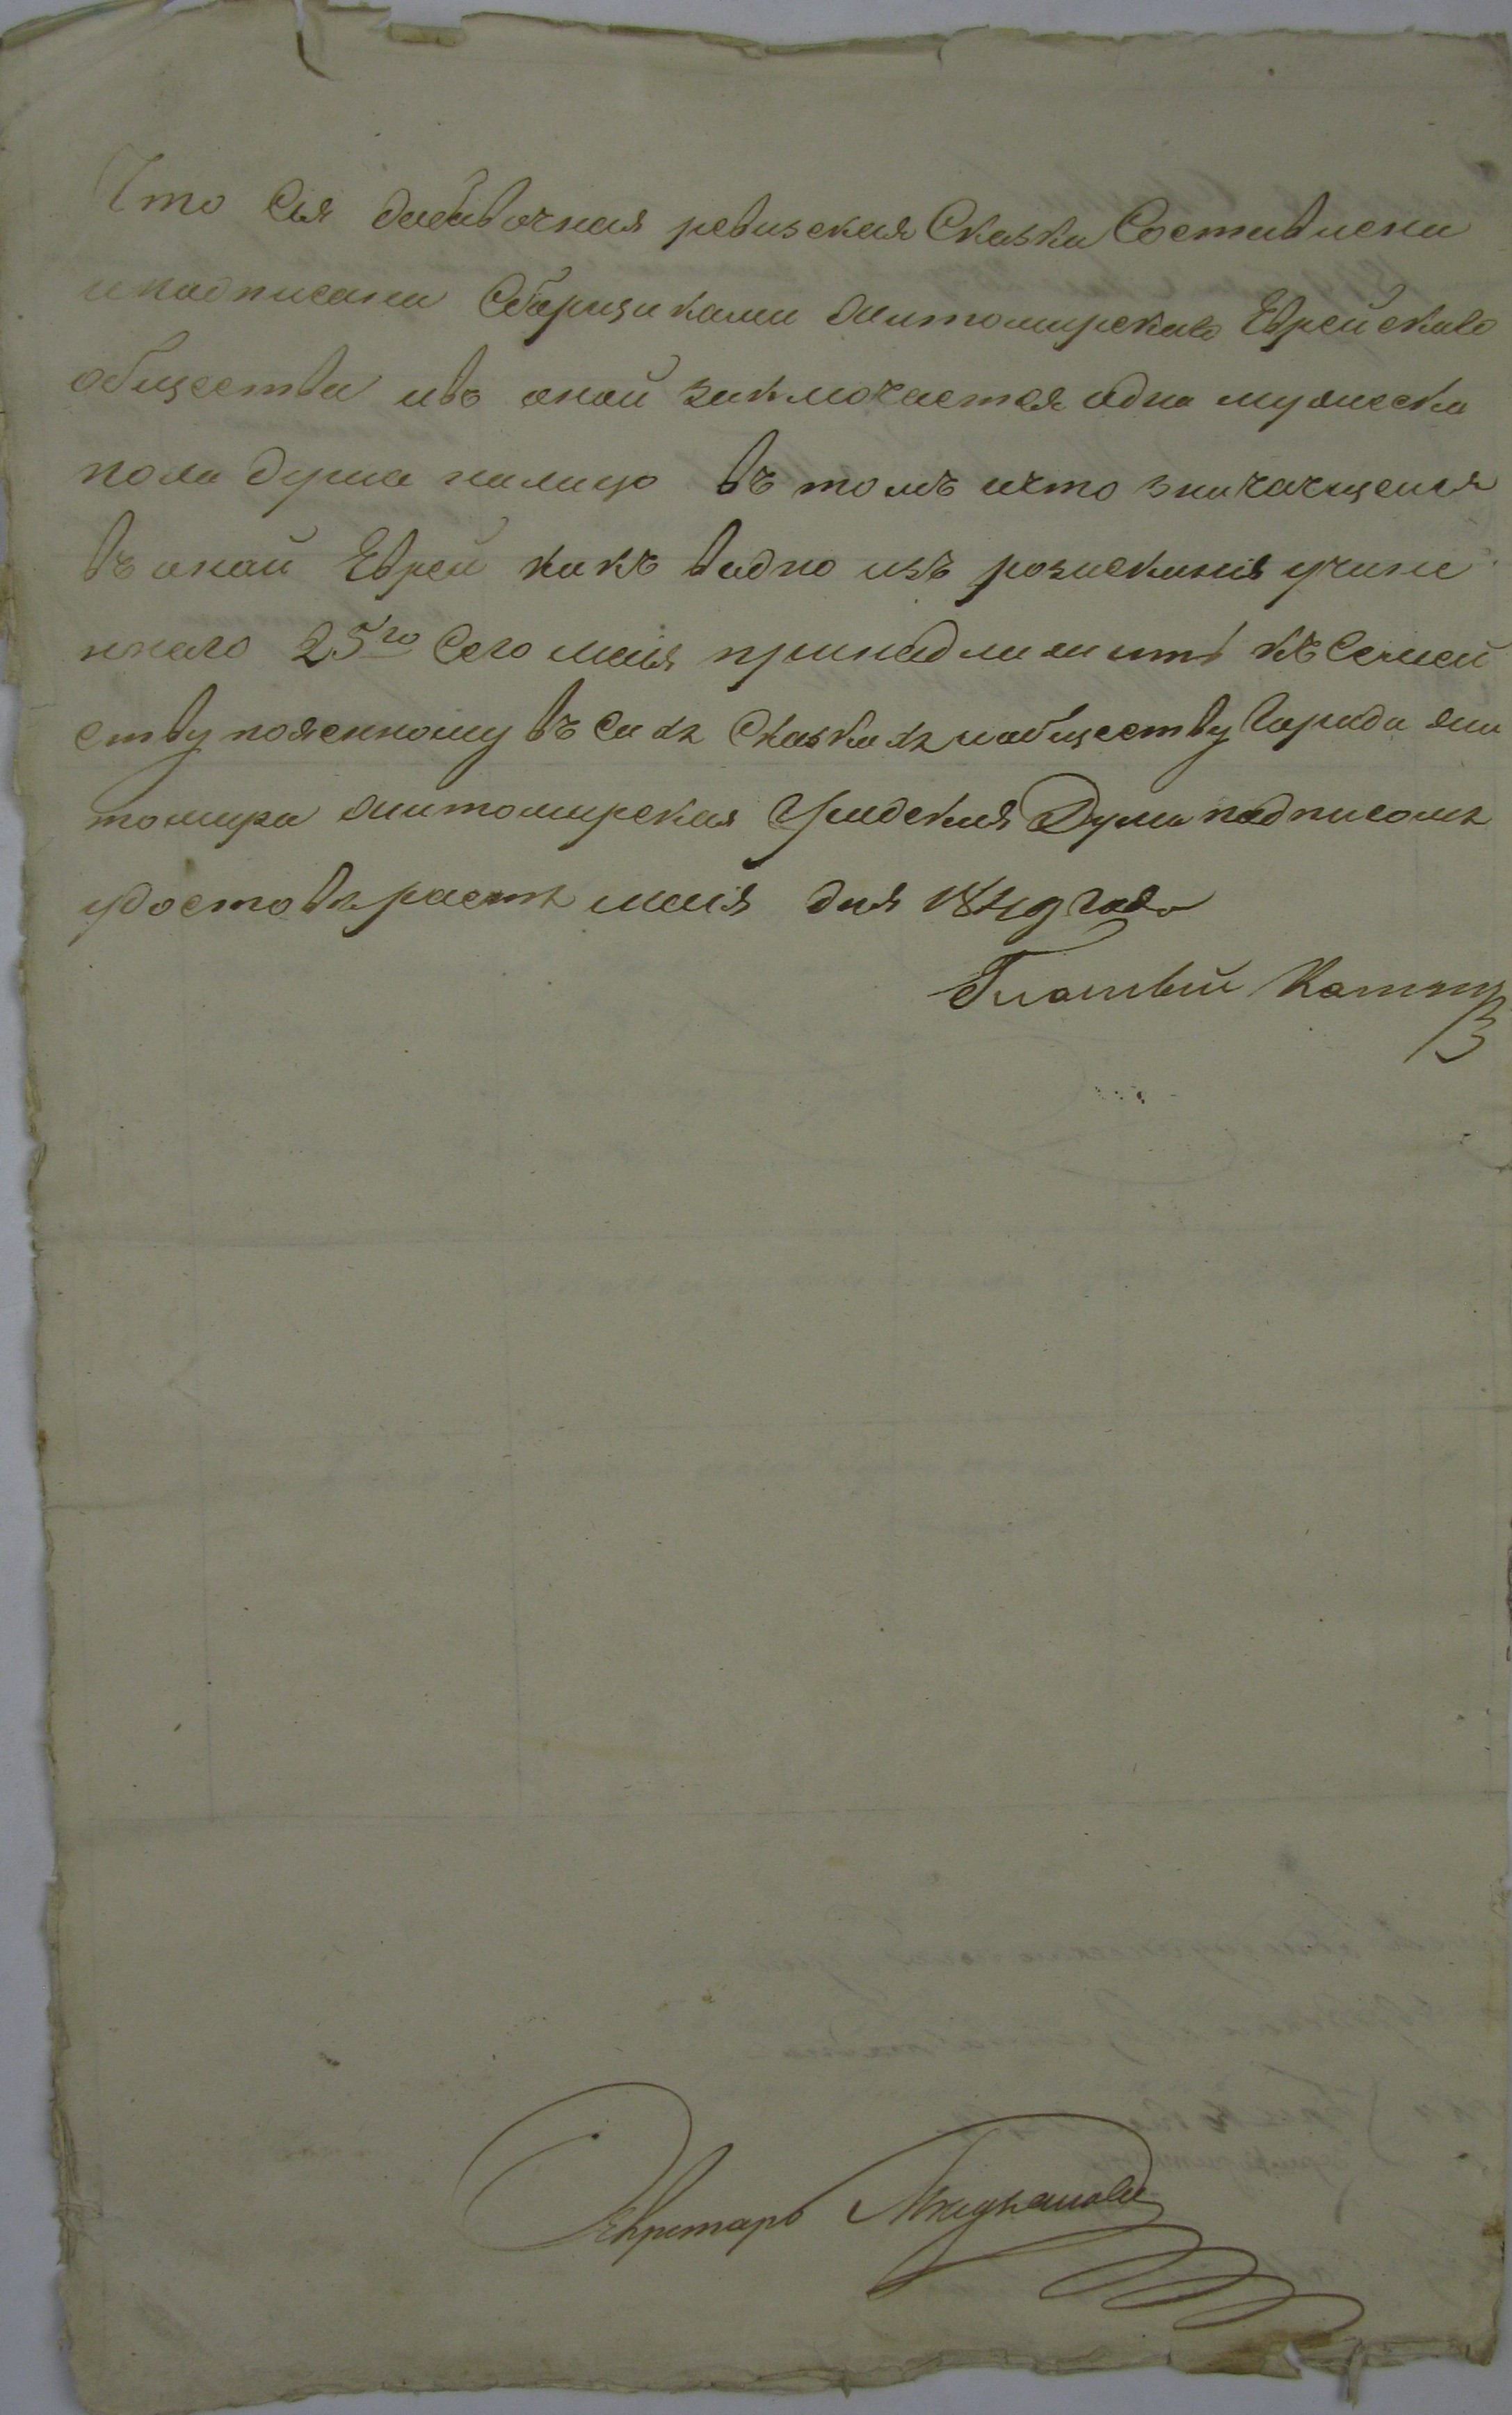 Что Сія добавочная ревизская Сказка Составлена
и подписана Сборщиками Житомирскаго Еврейскаго
общества ивъ оной заключается одна мужеска
пола душа налицо въ томъ ичто значащейся
въ оной Еврей какъ видно изъ розисканія учине
ннаго 25го Сего мая принадлижитъ къ Семей
ству поясненному въ Сихъ Сказкахъ иобществу Города Жи
томира Житомирская Градская Дума подписомъ
удостовѣраетъ мая дня 1849 года
Гласный
Секретарь